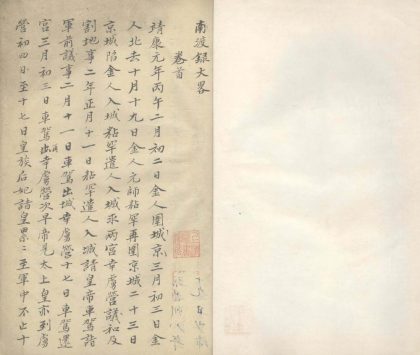 南渡録大畧
卷首
靖康元年丙午二月初二日金人圍城京三月初三日金
人北去十月十九日金人元帥粘罕再圍京城二十三日
京城陷金人入城粘罕遣人入城求兩宮幸虜營議和及
割地事二年正月十一日粘罕遣人入城請皇帝車駕詣
軍前議事二月十一日車駕出城幸虜營十七日車駕還
宮三月初三日車駕再幸虜營次早帝見太上皇亦到虜
營初四日至十七日皇族后妃諸皇累二至軍中不止十